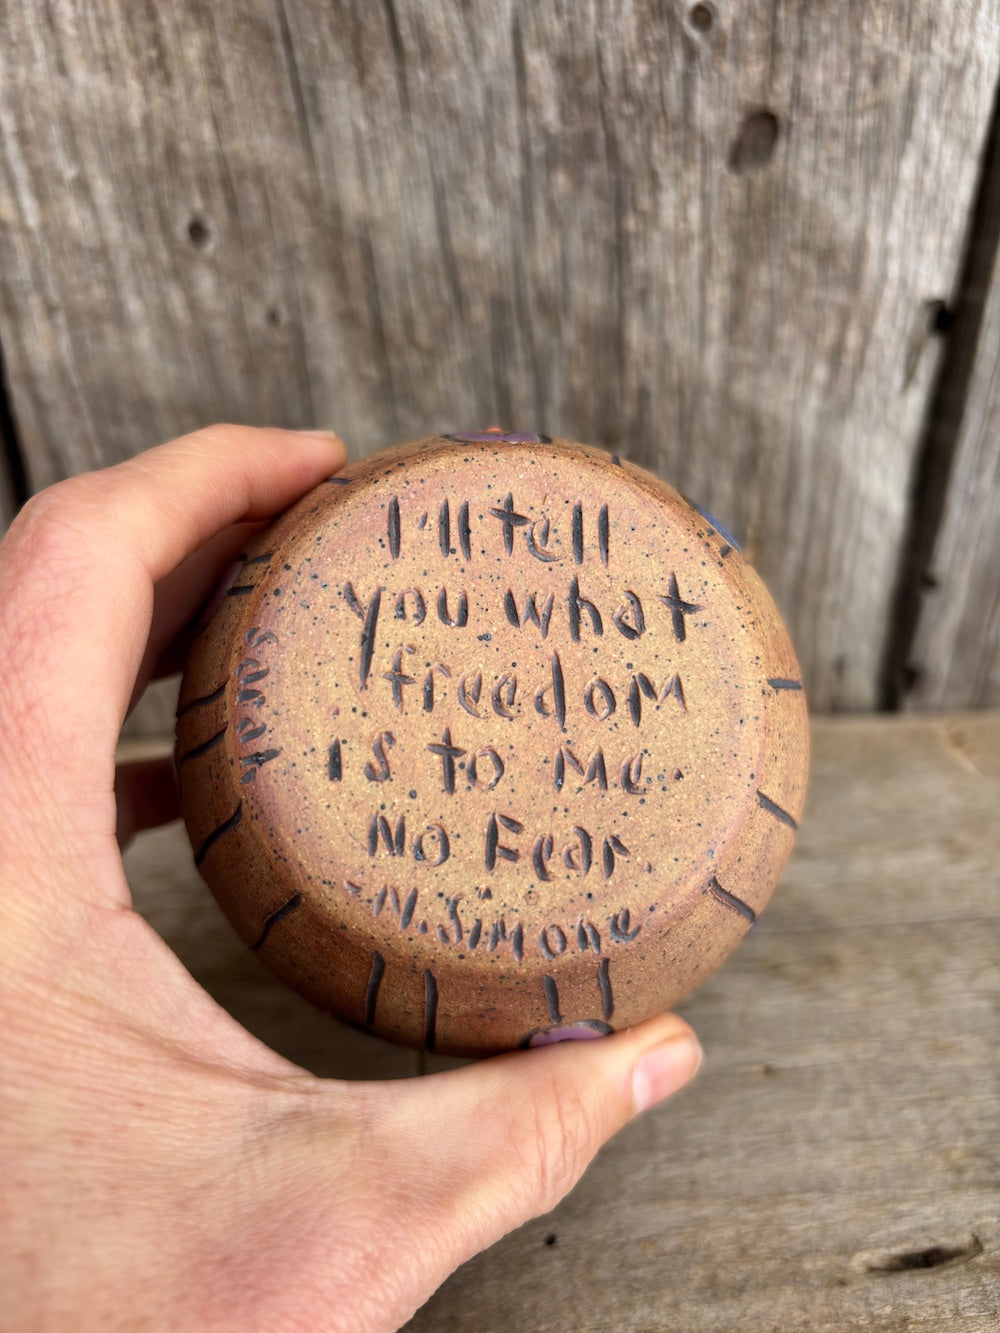 I'll tell
you what
freedom
is to me.
No Fear.
-N. Simone
Sarah